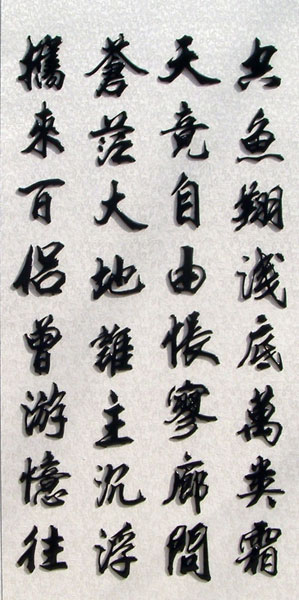 空魚翔淺底萬类霜
天竞自由悵寥廓問
蒼茫大地誰主沉浮
攜來百侶曾游憶往